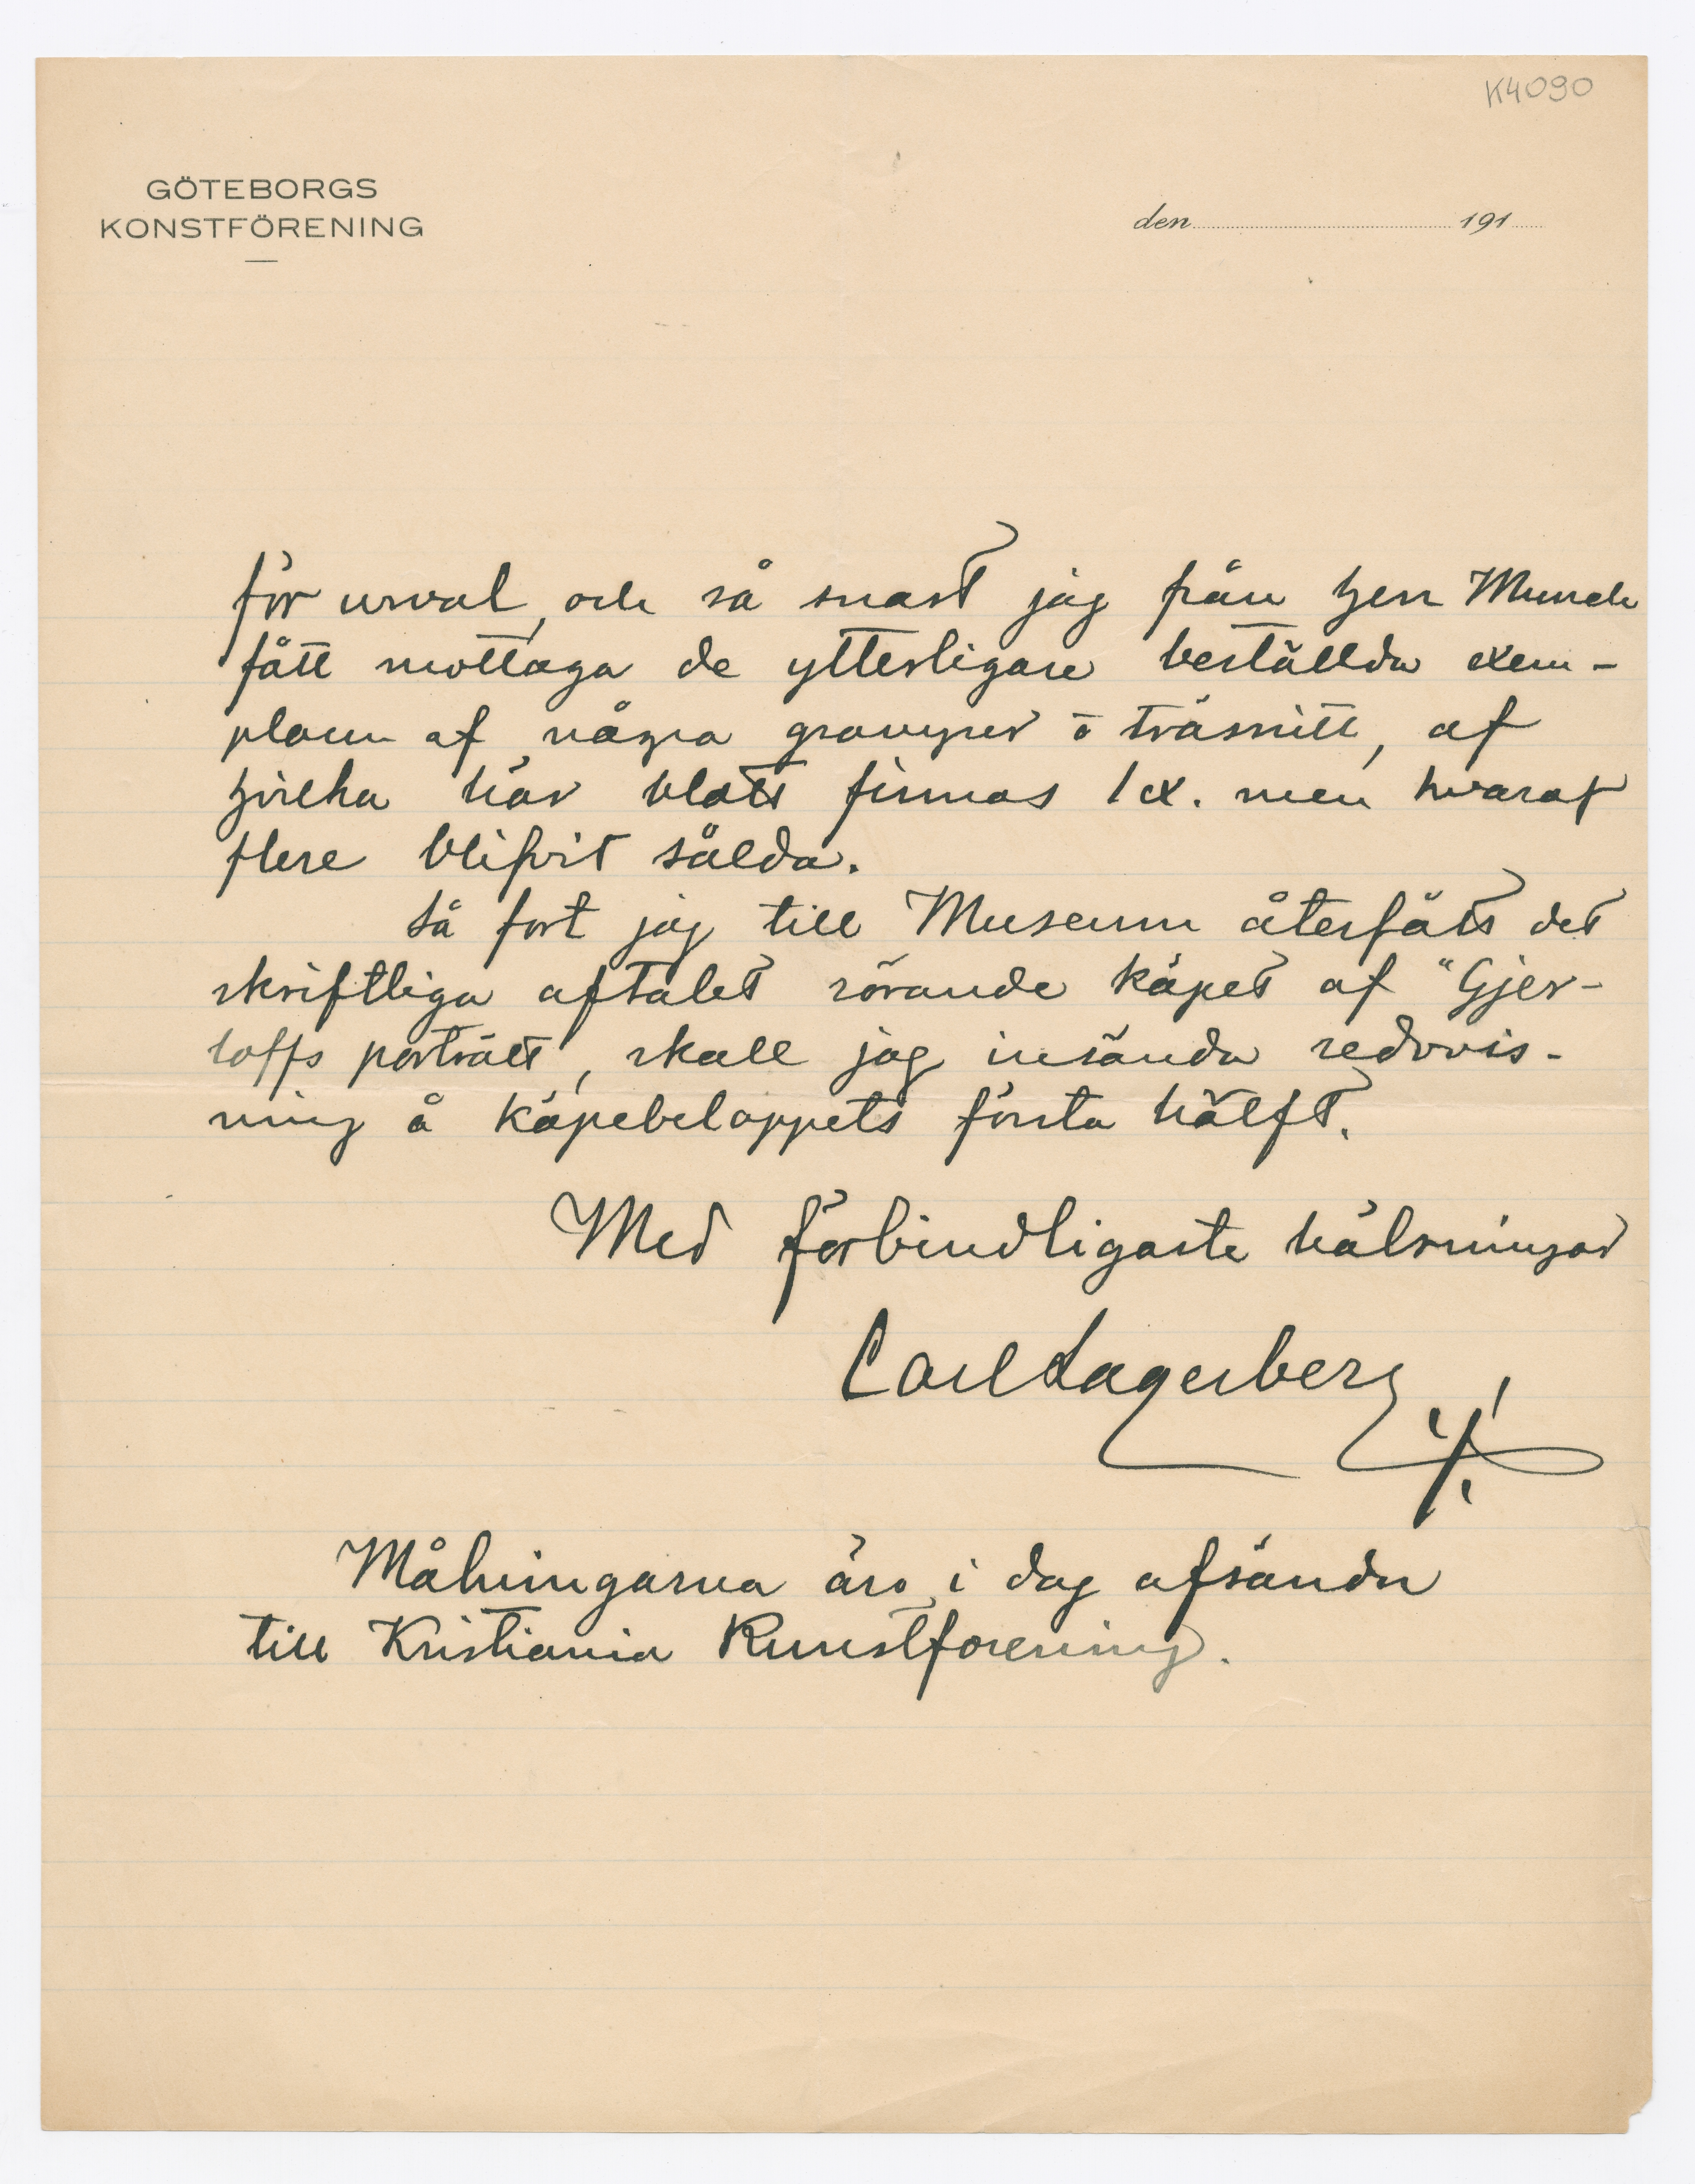 K4090
GÖTEBORGS
KONSTFÖRENING
den 191
för urval, och så snart jag från Herr Munch
fått mottaga de ytterligare beställda exem-
plaren af några gravyrer o träsnitt, af
hvilka här blott finnas 1 ex. men hvaraf
flere blifvit sålda.
Så fort jag till Museum återfåtts det
skriftliga aftalet rörande köpet af "Gjer-
loffs porträtt, skall jag insända redovis-
ning å köpebeloppets första hälft.
Med förbindligaste hälsningar
Carl Lagerberg
Målningarna äro i dag afsända
till Kristiania Kunstforening.